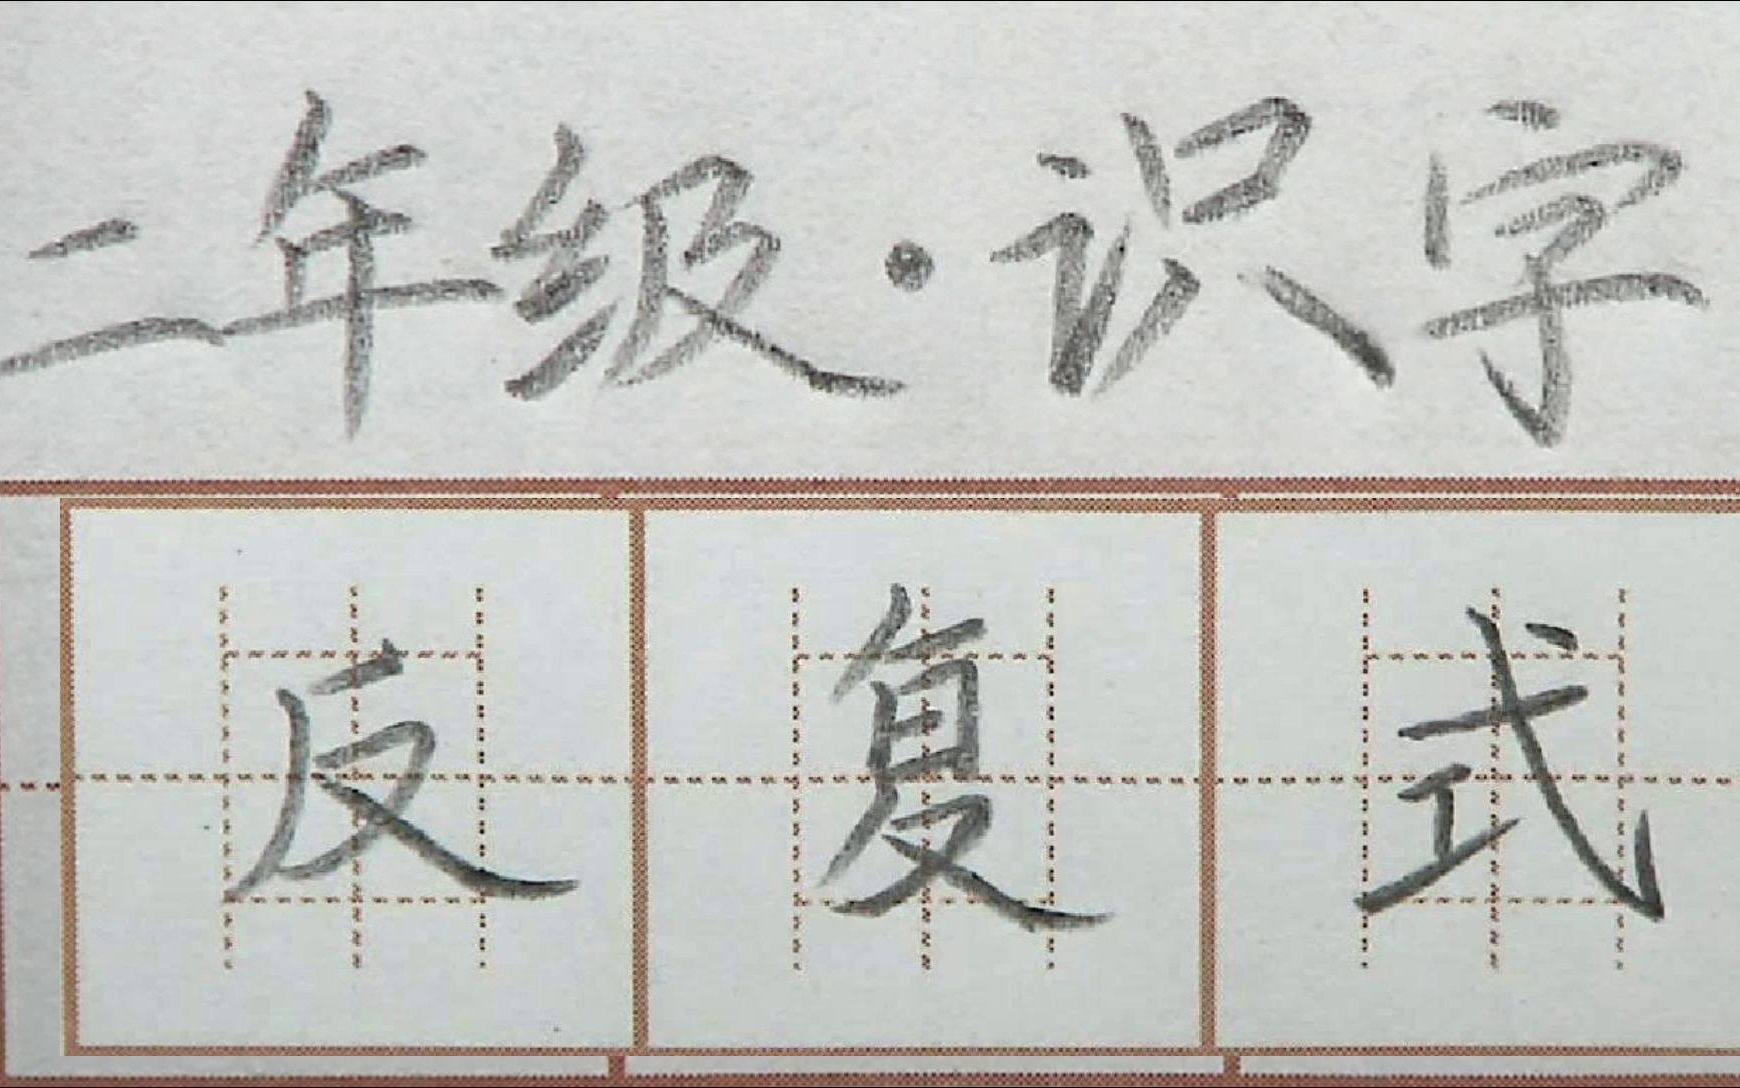 二年级·识字
反复式